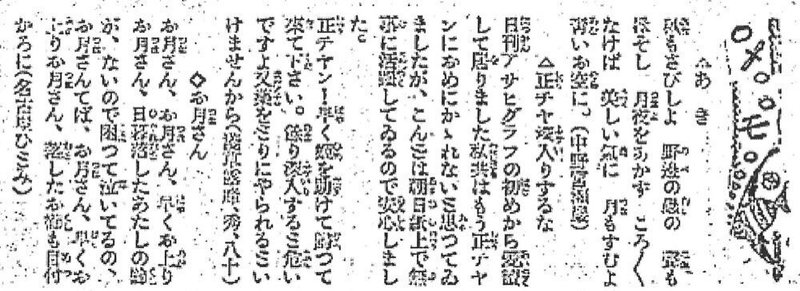 メモ
△あき
もさびしよ 野邊の蟲の 聲も
ほそし 月夜をあかす ころ〱
たけば 美しい氣に 月もすむよ
靑いお空に。(中野
△正チヤ深入りするな
日刊アサヒグラフの初めから愛讀
して居りました私共はもう正チヤ
ンにおめにかゝれないと思つてゐ
ましたが、こんどは朝日紙上で無
事に活躍してゐるので安心しまし
た。
正チヤン!早く姫を助けて歸つて
來て下さい。餘り深入すると危い
ですよ又 にやられるとい
けませんから(淺草 秀、八十)
◇お月さん
お月さん、お月さん、早くお上り
お月さん、日暮落したあたしの鈴
が、ないので困つて泣いてるの、
お月さんてば、お月さん、早くお
上りお月さん、落したお鈴も目付
かろに(名古屋ひさみ)